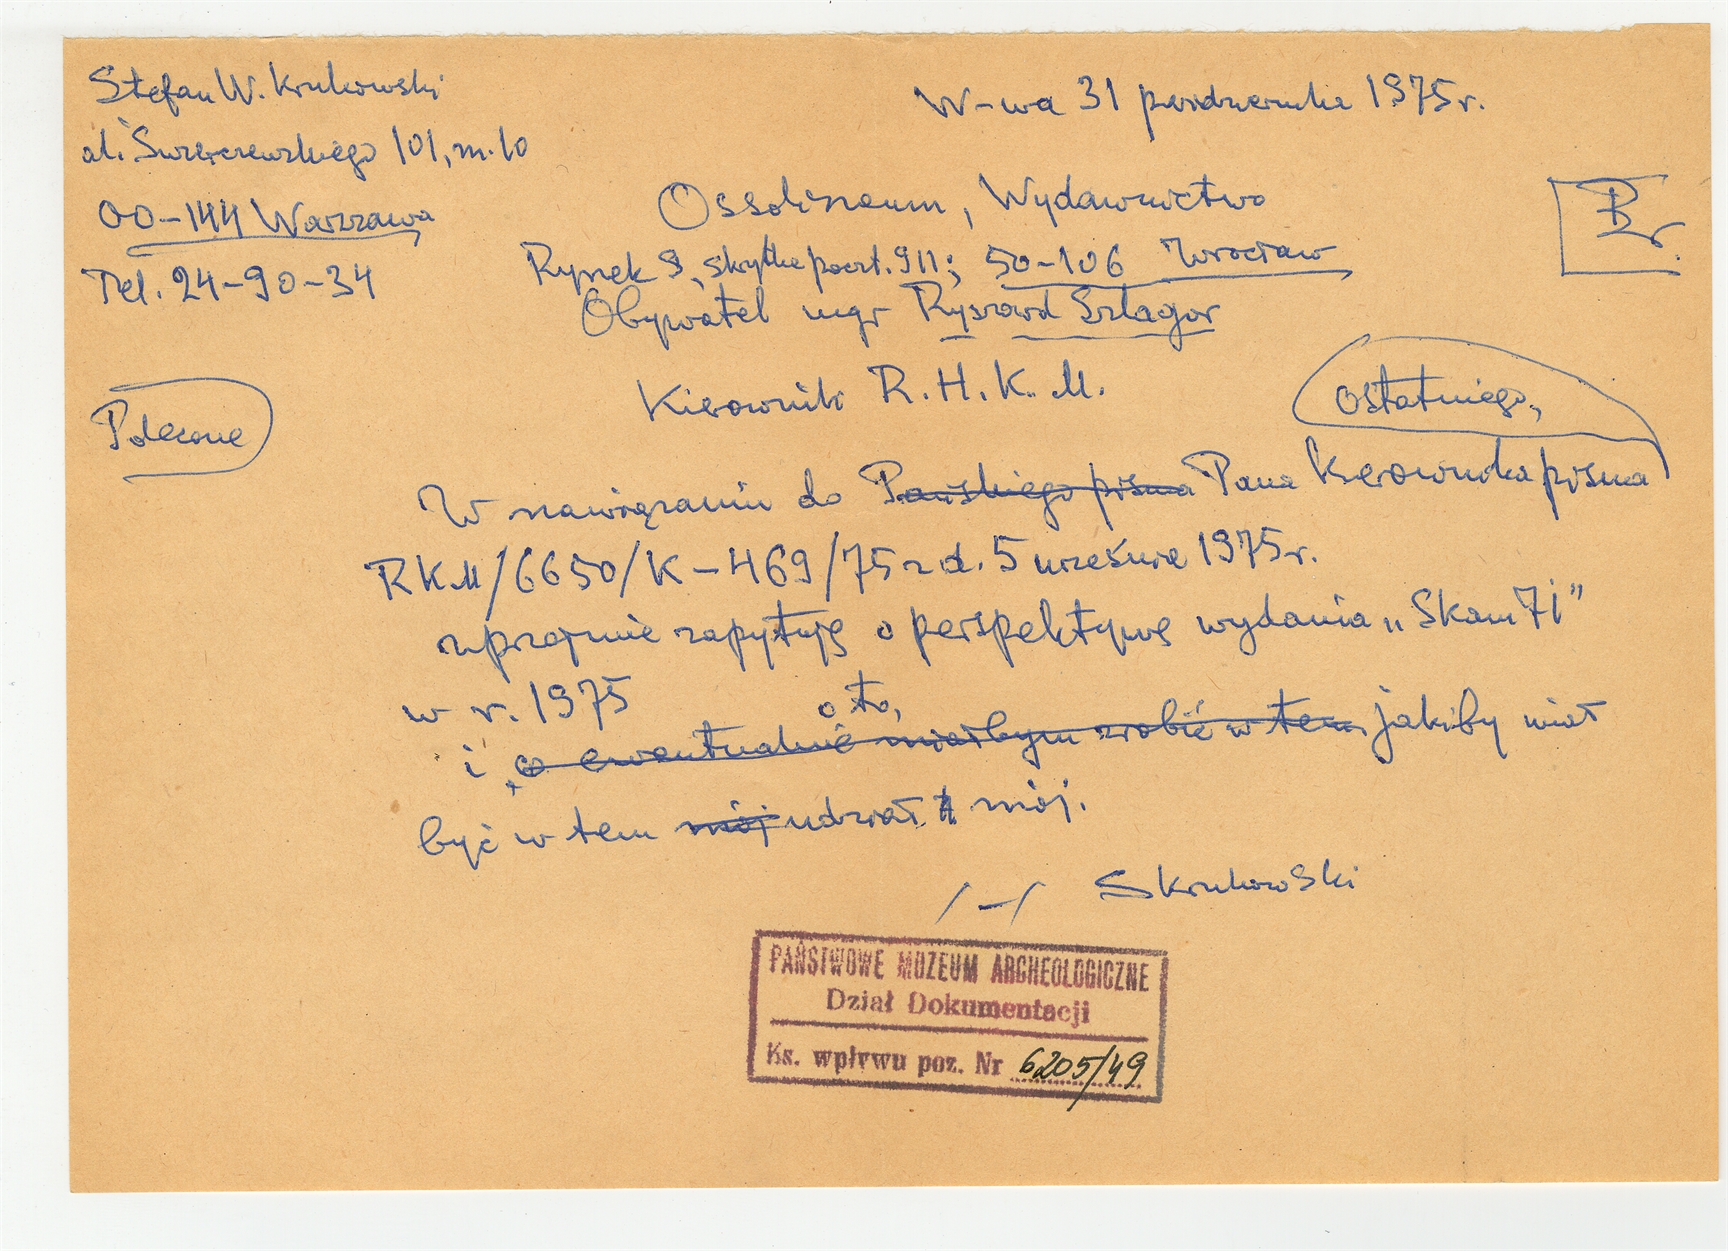 Stefan W. Krukowski
W-wa 31 października 1975 r.
al. Świerczewskiego 101, m. 10
00-144 Warszawa
Tel. 24-90-34
Ossolineum, Wydawnictwo
Br
Rynek 9, skrytka poczt. 911; 50-106 Wrocław
Obywatel mgr Ryszard Szlagor
Kierownik R. H. K. M.
Polecone
ostatniego,
W nawiązaniu do Pańskiego pisma Pana Kierownika pisma
RKM/6650/K-469/75 z d. 5 września 1975 r.
uprzejmie zapytuję o perspektywę wydania „Skam 71"
w r. 1975
o to,
i co ewentualnie miałbym zrobić w tem jakiby miał
być w tem mój udział mój.
/-/ SKrukowski
PAŃSTWOWE MUZEUM ARCHEOLOGICZNE
Dział Dokumentacji
Ks. wpływu poz. Nr 6205/49